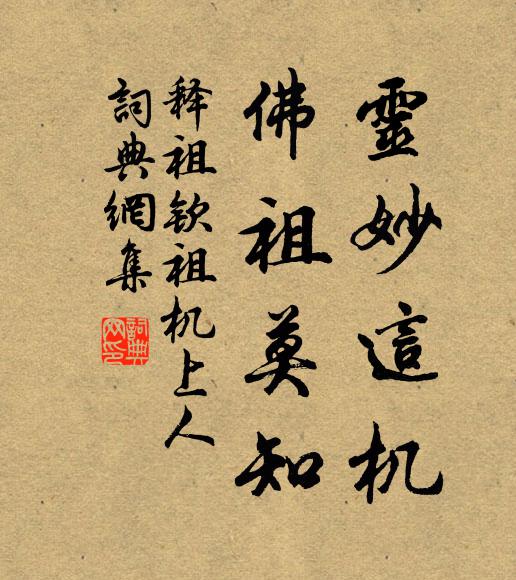 靈妙這机
佛祖莫知
释祖钦祖机上人
詞典網集
詞典
网印